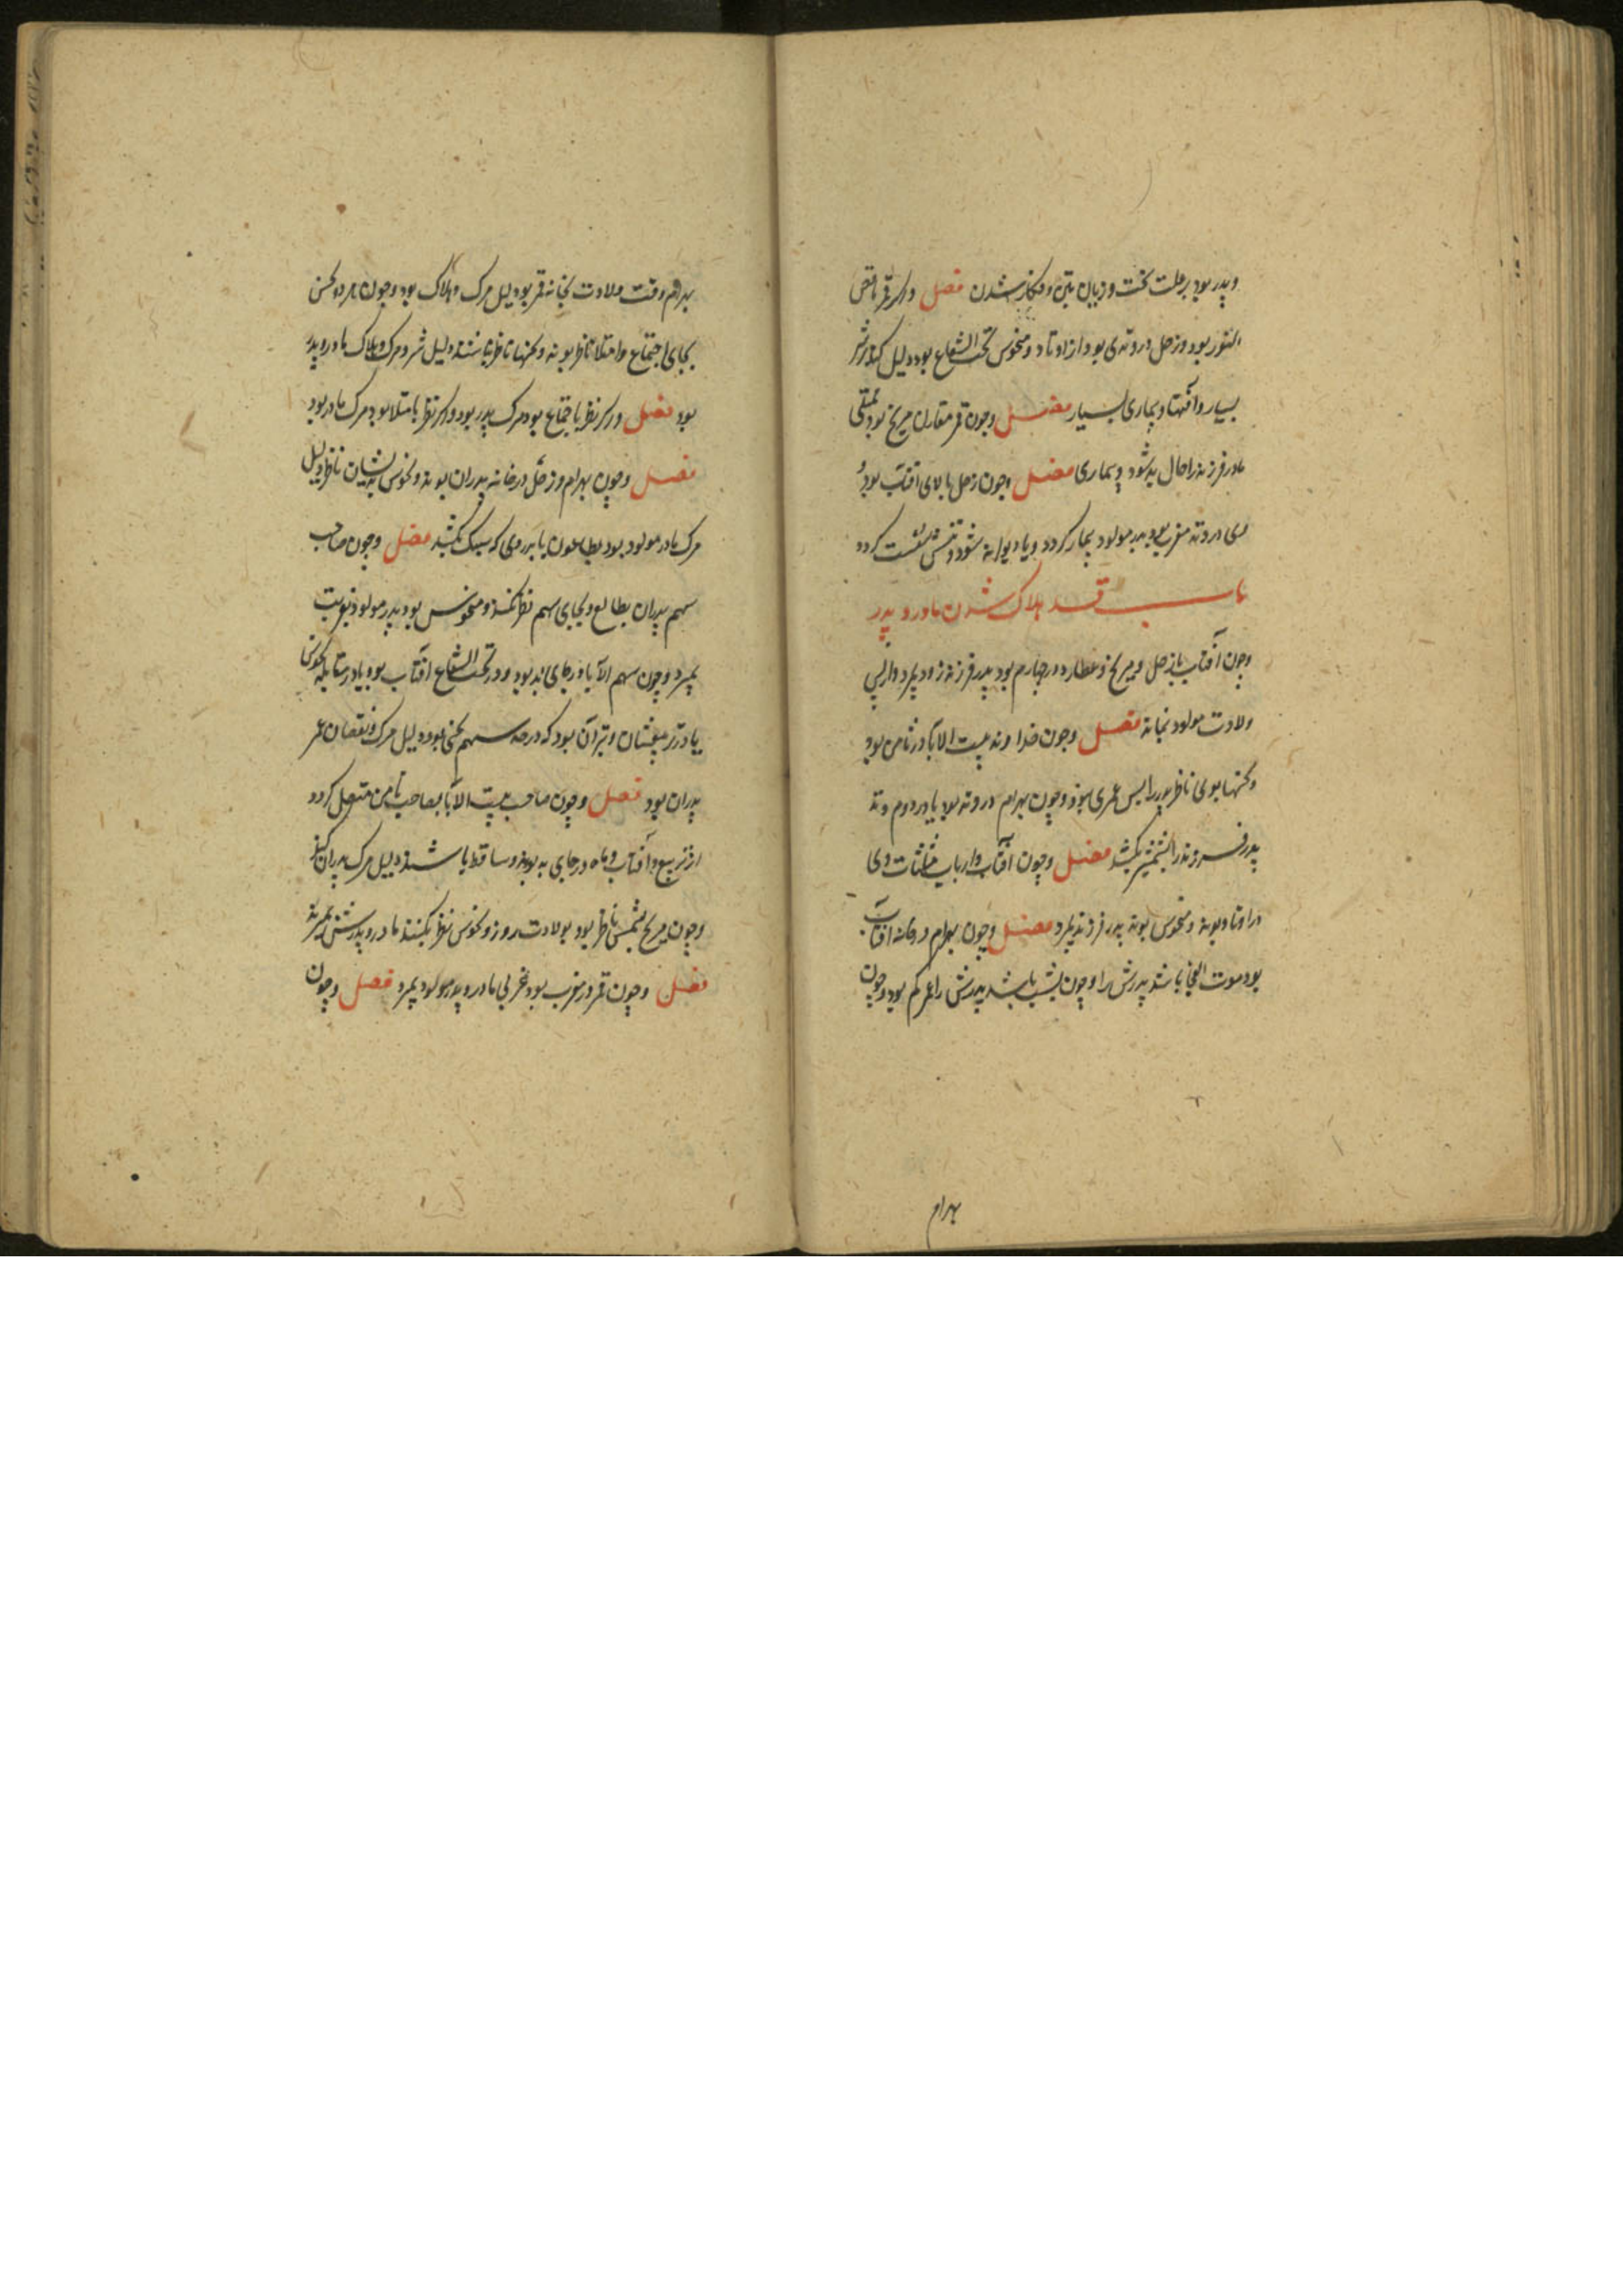 و پدر بود بر علت سخت و زیان تن و فکار شدن فصل و اگر قمر ناقص
النور بود و زحل در وتدی بود از اوتاد و منحوس تحت الشعاع بود دلیل کند بر شر
بسیار و آفتها و بیماری بسیار فصل و چون قمر مقارن مریخ بود
مادر فرزند را حال بد شود و بیماری فصل و چون زحل بالای آفتاب بود
در وتد مغرب بود پدر مولود بیمار گردد و یا دیوانه شود و تنش سست گردد
باب هلاک شدن مادر و پدر
و چون آفتاب با زحل و مریخ و عطارد در چهارم بود پدر فرزند زود بمیرد و از پس
ولادت مولود نماند فصل و چون خداوند بیت الآبا در ثامن بود
و نحسها بوی ناظر پدر را بس عمری نبود و چون بهرام در وتد بود یا در دوم وتد
پدر فرزند را بشمشیر بکشد فصل و چون آفتاب و ارباب مثلثات وی
در اوتاد بوند و منحوس بوند پدر فرزند بمیرد فصل و چون بهرام در خانه آفتاب
بود موت الفجا باشد پدرش را و چون بشب باشد پدرش را عمر کم بود و چون
بهرام
بهرام وقت ولادت بخانه قمر بود دلیل مرگ و هلاک بود و چون هر دو نحس
بجای اجتماع و امتلا ناظر بوند و نحسها ناظر باشند دلیل شر و مرگ و هلاک مادر و پدر
بود فصل و اگر نظر باجتماع بود مرگ پدر بود و اگر نظر بامتلا بود مرگ مادر بود
فصل و چون بهرام و زحل در خانه پدران بوند و نحوس بدیشان ناظر دلیل
مرگ مادر مولود بود بطاعون یا بدردی که سبک بکشد فصل و چون صاحب
سهم پدران بطالع و بجای سهم نظر نکند و منحوس بود پدر مولود بغربت
بمیرد و چون سهم الآبا در جای بد بود و در تحت الشعاع آفتاب بود یا در مقابله نحوس
یا در تربیعشان و بتر آن بود که درجه سهم نحس بود دلیل مرگ و نقصان عمر
پدران بود فصل و چون صاحب بیت الآبا بصاحب ثامن متصل گردد
از تربیع و آفتاب و ماه در جای بد بوند و ساقط باشند دلیل مرگ پدران کند
و چون مریخ بشمس ناظر بود بولادت روز و نحوس نظر بکنند مادر و پدرش بمیرند
فصل و چون قمر در مغرب بود غربی مادر و پدر مولود بمیرد فصل و چون